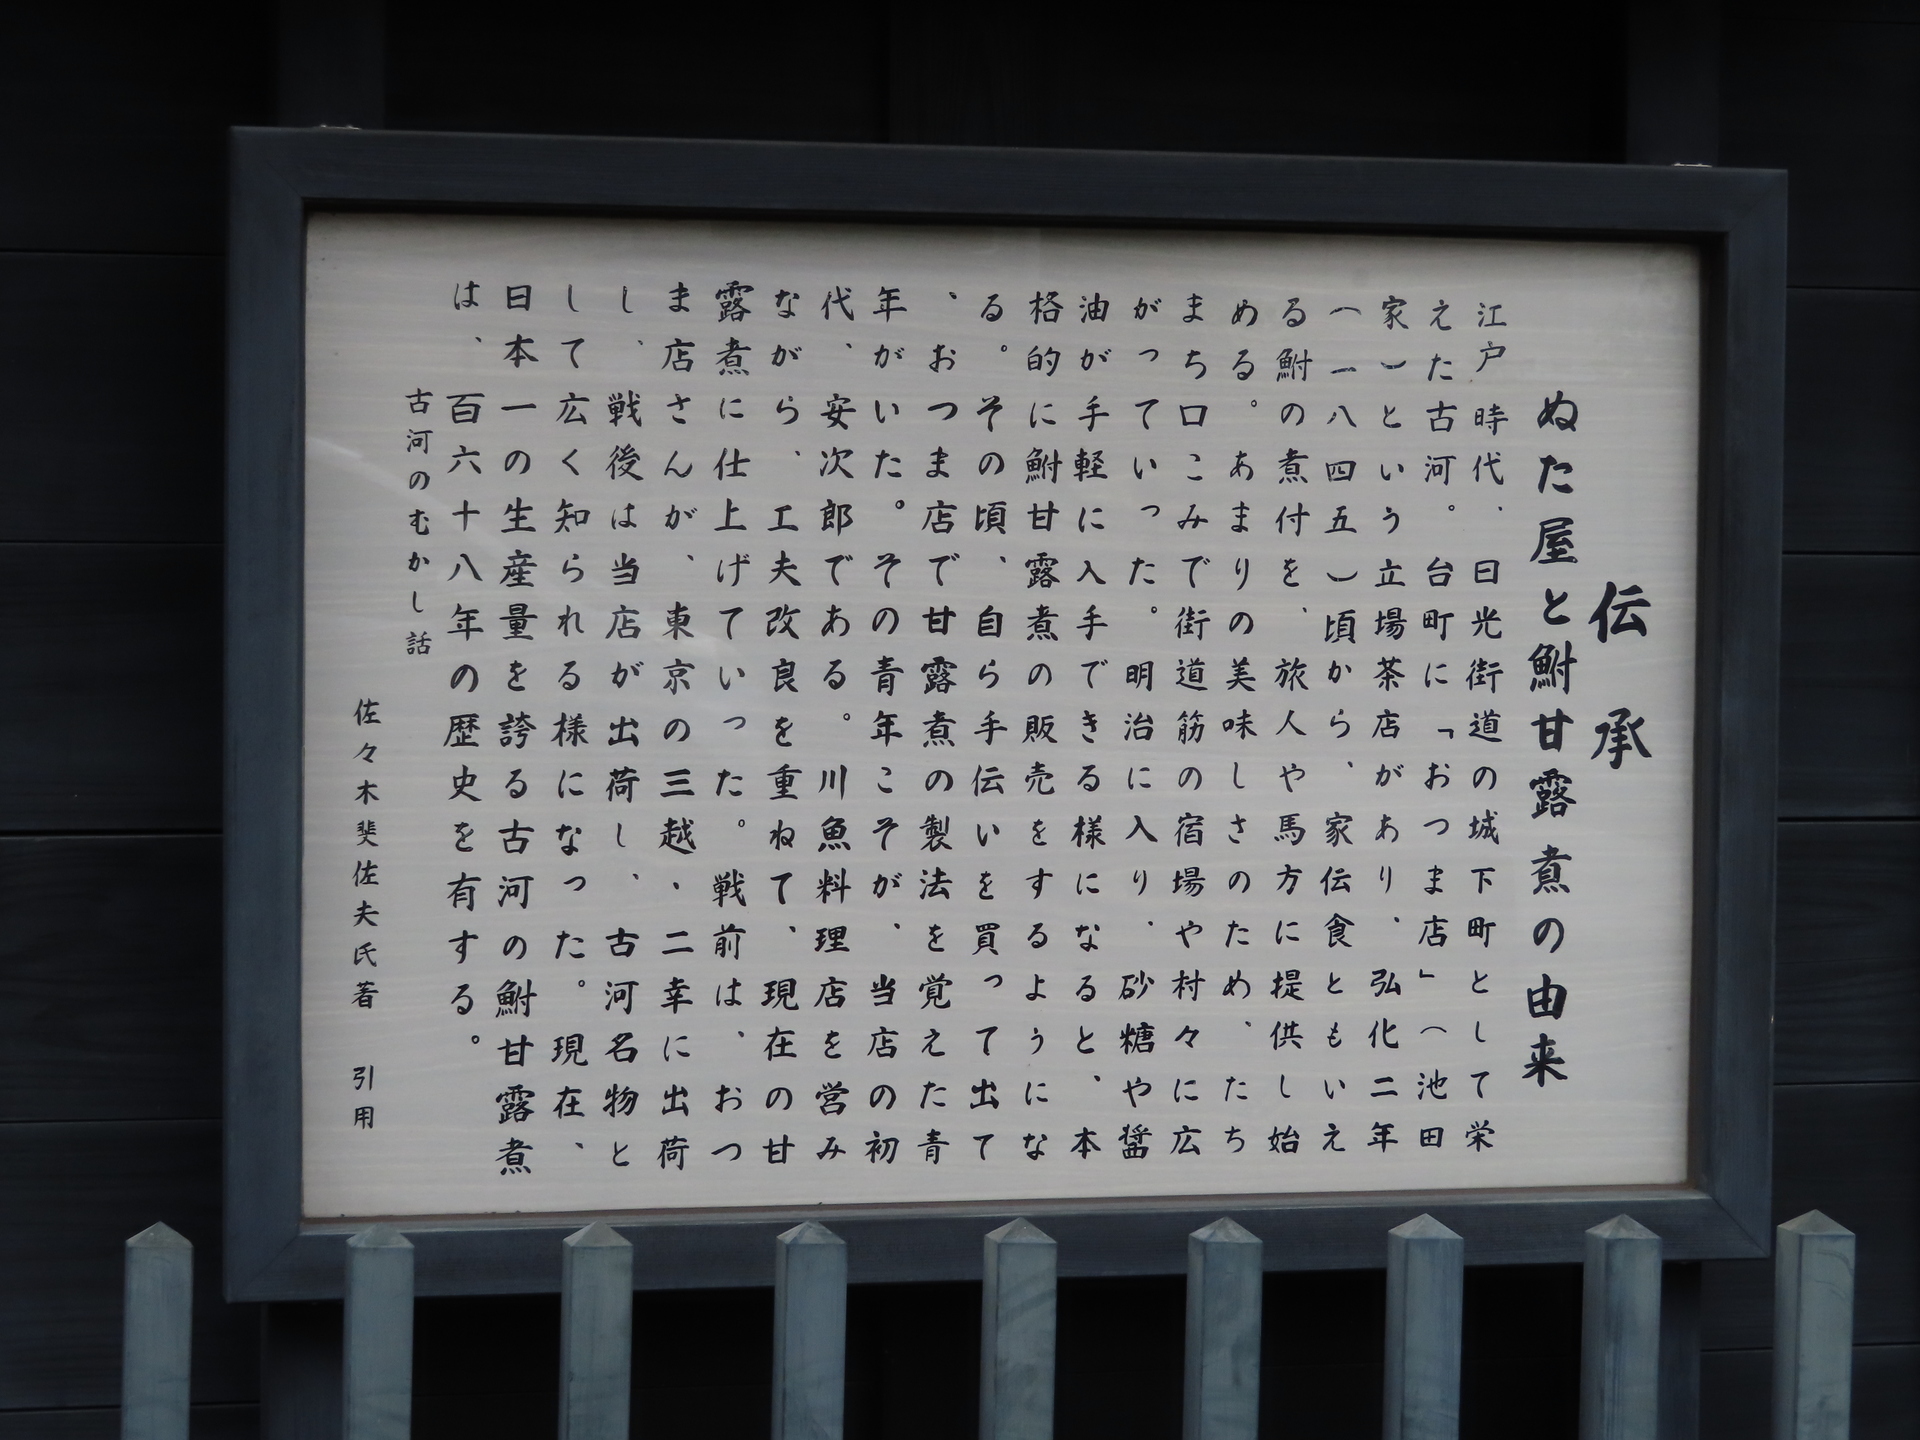 伝承
ぬた屋と鮒甘露煮の由来
江戸時代、日光街道の城下町として栄
えた古河。台町に「おつま店」(池田
家)という立場茶店があり、弘化二年
(一八四五)頃から、家伝食ともいえ
る鮒の煮付を、旅人や馬方に提供し始
める。あまりの美味しさのため、たち
まち口こみで街道筋の宿場や村々に広
がっていった。明治に入り、砂糖や醤
油が手軽に入手できる様になると、本
格的に鮒甘露煮の販売をするようにな
る。その頃、自ら手伝いを買って出て
、おつま店で甘露煮の製法を覚えた青
年がいた。その青年こそが、当店の初
代、安次郎である。川魚料理店を営み
ながら、工夫改良を重ねて、現在の甘
露煮に仕上げていった。戦前は、おつ
ま店さんが、東京の三越・二幸に出荷
し、戦後は当店が出荷し、古河名物と
して広く知られる様になった。現在、
日本一の生産量を誇る古河の鮒甘露煮
は、百六十八年の歴史を有する。
古河のむかし話
佐々木斐佐夫氏著 引用